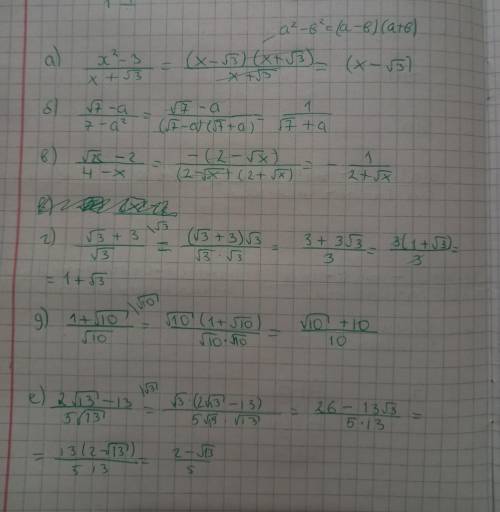 a² - в² = (a - в)(a + в)
а) \frac{x² - 3}{x + √3} = \frac{(x - √3)(x + √3)}{x + √3} = (x - √3)
б) \frac{√7 - a}{7 - a²} = \frac{√7 - a}{(√7 - a)(√7 + a)} = \frac{1}{√7 + a}
в) \frac{√x - 2}{4 - x} = \frac{-(2 - √x)}{(2 - √x)(2 + √x)} = - \frac{1}{2 + √x}
г) \frac{√3 + 3}{√3}^{\√3} = \frac{(√3 + 3)√3}{√3 · √3} = \frac{3 + 3√3}{3} = \frac{3(1 + √3)}{3} =
= 1 + √3
д) \frac{1 + √10}{√10}^{\√10} = \frac{√10 (1 + √10)}{√10 · √10} = \frac{√10 + 10}{10}
е) \frac{2√13 - 13}{5√13} = \frac{(2√13 - 13)}{5√13 · √13} = \frac{26 - 13√3}{5 · 13} =
= \frac{13(2 - √13)}{5 · 13} = \frac{2 - √13}{5}